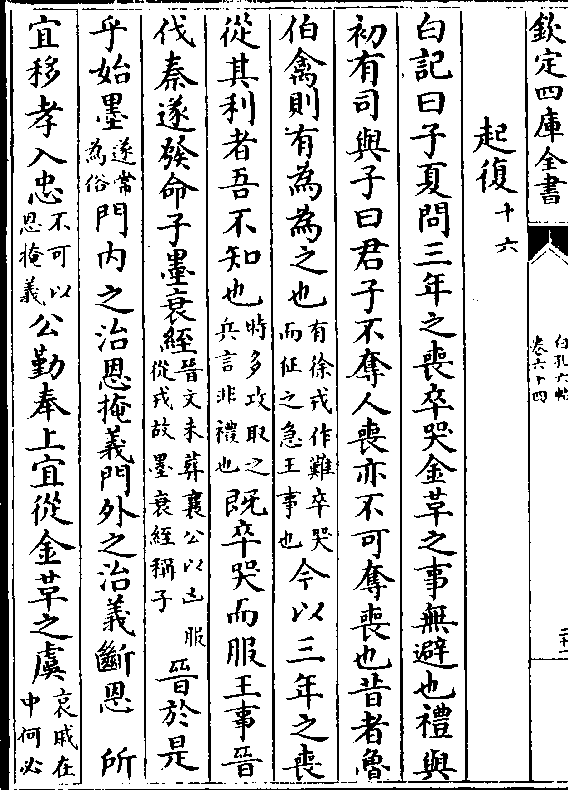 欽定四庫全書
白孔六帖
卷六十四
起復十六
白記曰子夏問三年之喪卒哭金革之事無避也禮與
初有司與子曰君子不奪人喪亦不可奪喪也昔者魯
伯禽則有為為之也有徐戎作難卒哭而征之急王事也今以三年之喪
從其利者吾不知也時多攻取之兵言非禮也既卒哭而服王事晉
伐秦遂發命子墨衰絰晉文未葬襄公以凶服從戎故墨衰絰稱子晉於是
乎始墨遂常為俗門内之治恩掩義門外之治義斷恩 所
宜移孝入忠不可以恩掩義公勤奉上宜從金革之虞哀戚在中何必